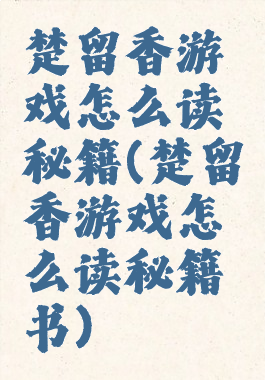 楚留香游
戏怎么读
秘籍(楚留
香游戏怎
么读秘籍
书)